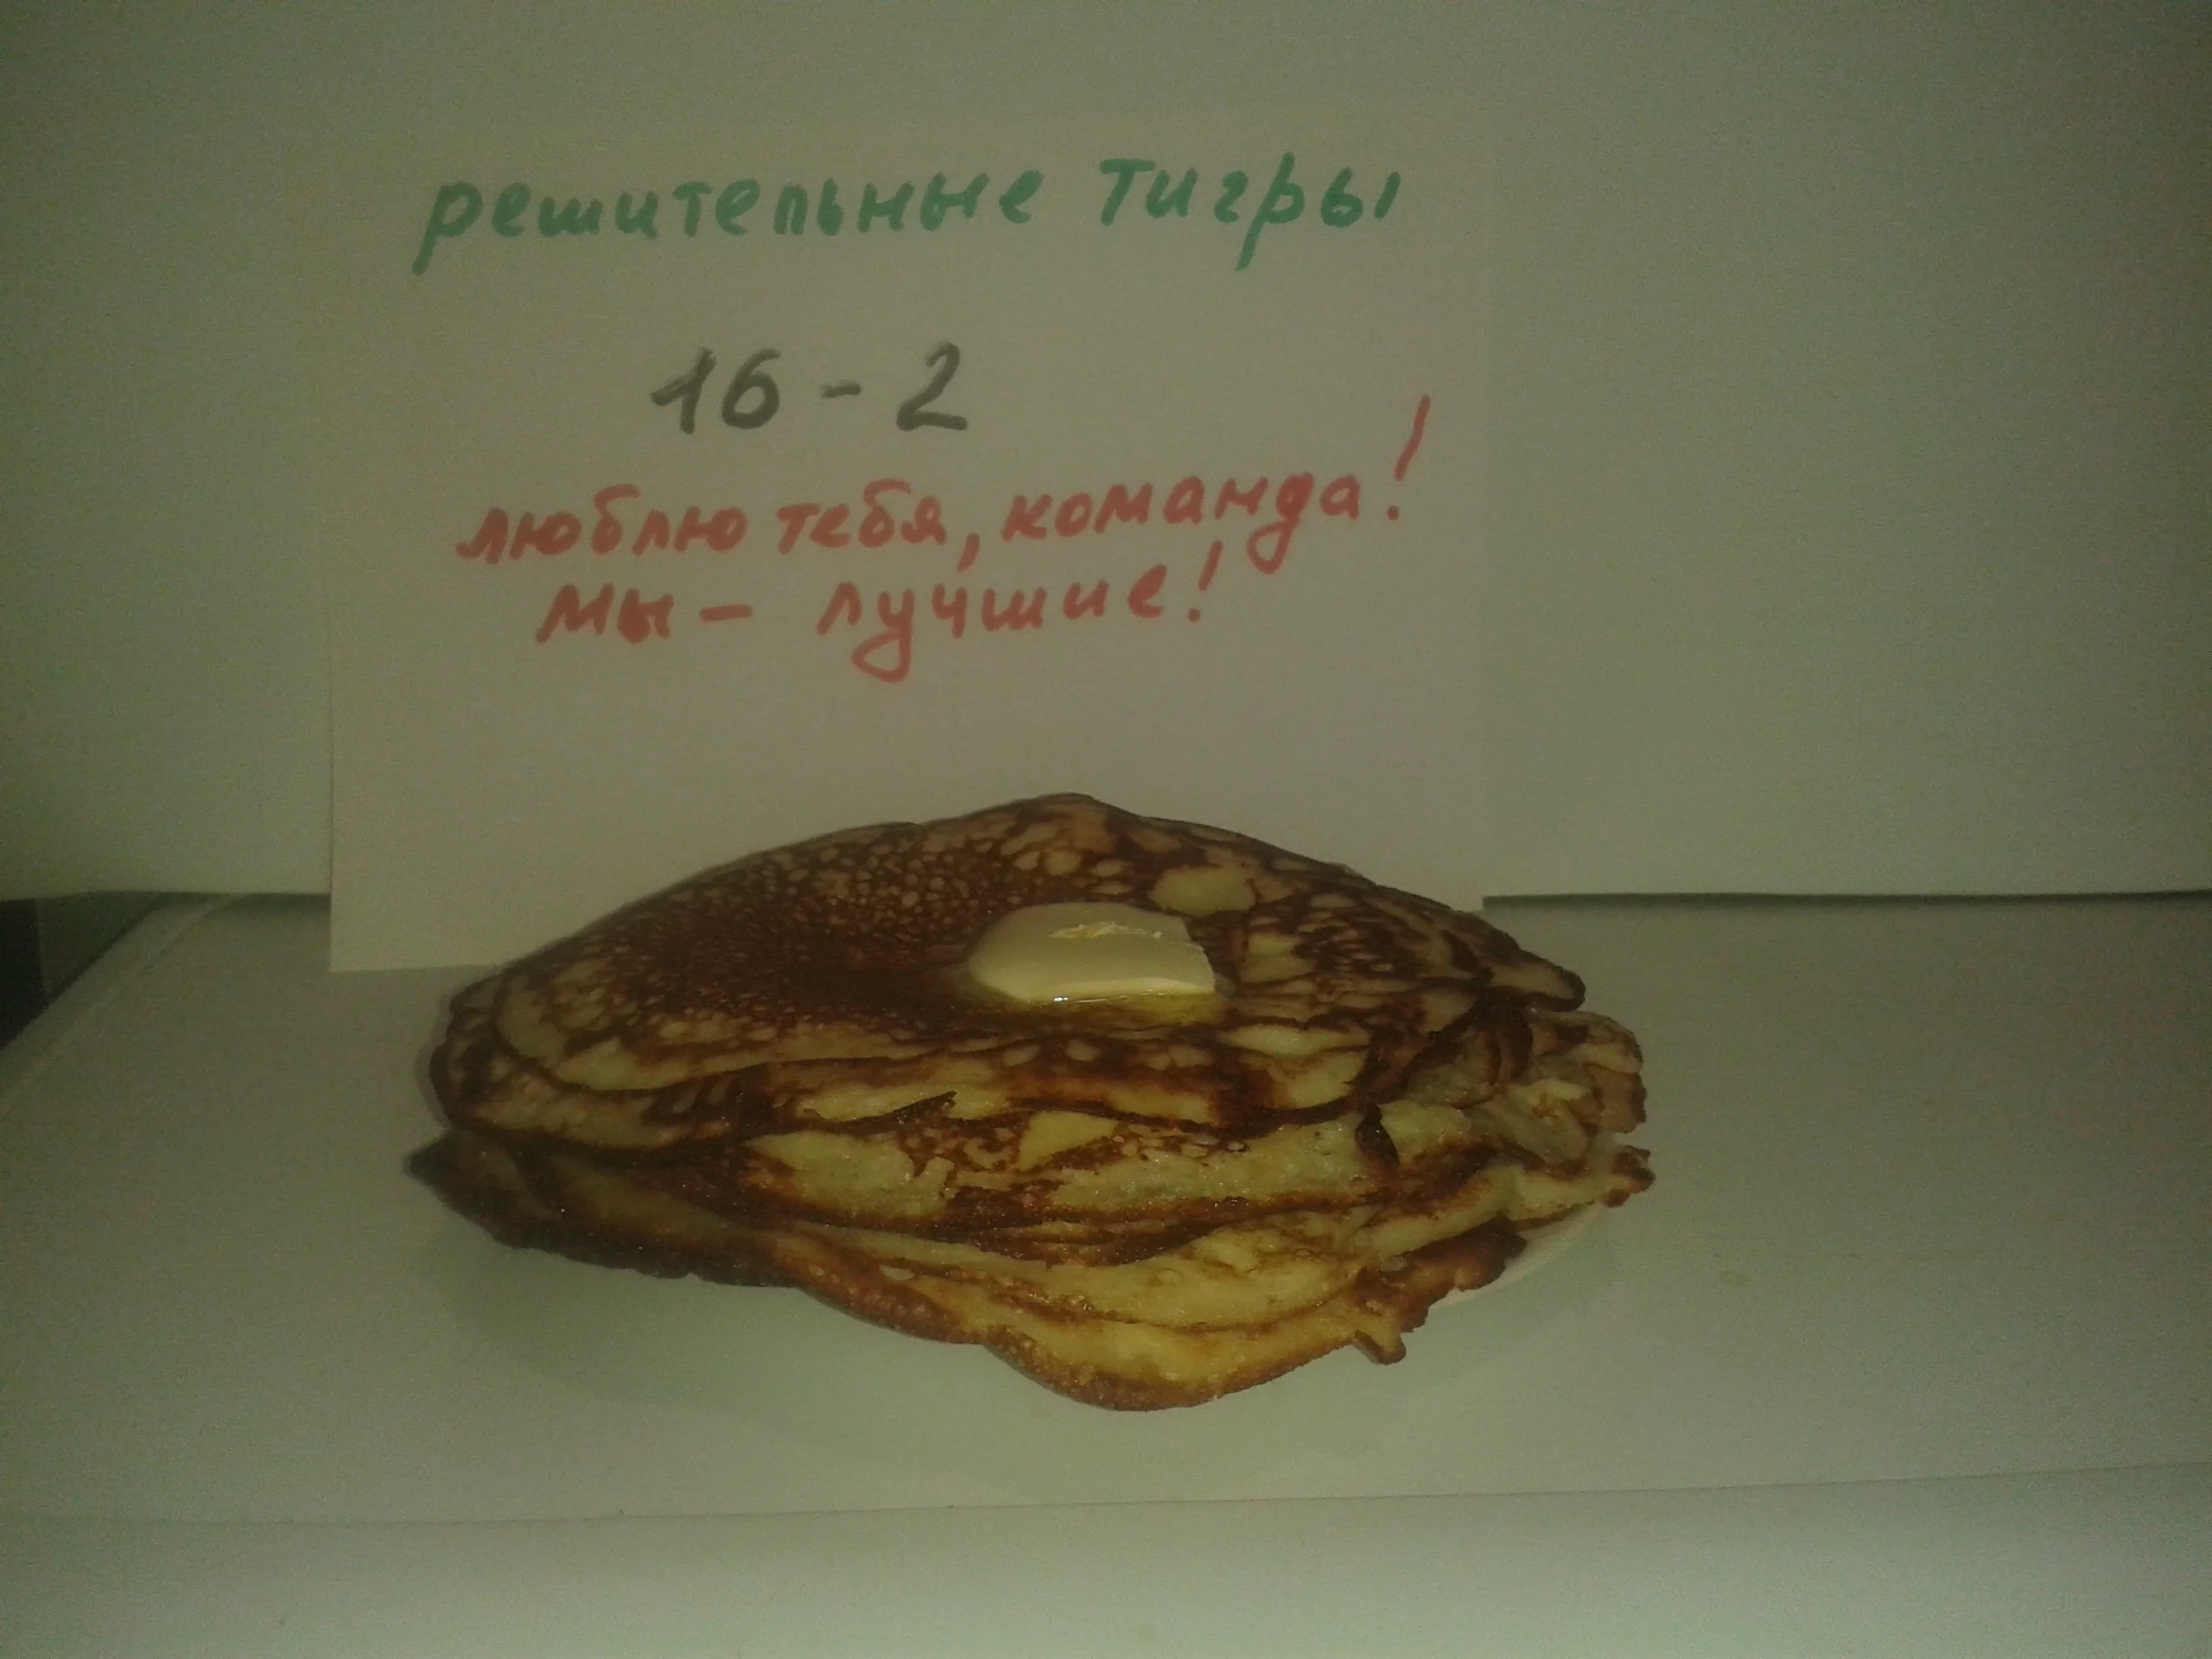 решительные тигры
16-2
люблю тебя, команда!
мы - лучшие!